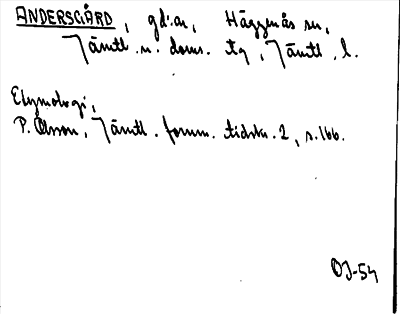 ANDERSGÅRD, gd:ar, Häggenås sn,
Jämtl. n. doms. tg, Jämtl. l.
Etymologi,
P. Olsson, Jämtl. fornm. tidskr. 2, s. 166.
OJ-54